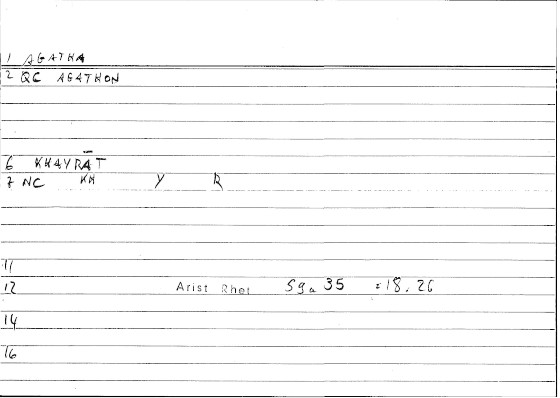 1 AGATHA
2 QC AGATHON
6 KHAYRĀT
7 NC KH Y R
11
12 Arist Rhet 59a 35 =18.26
14
16